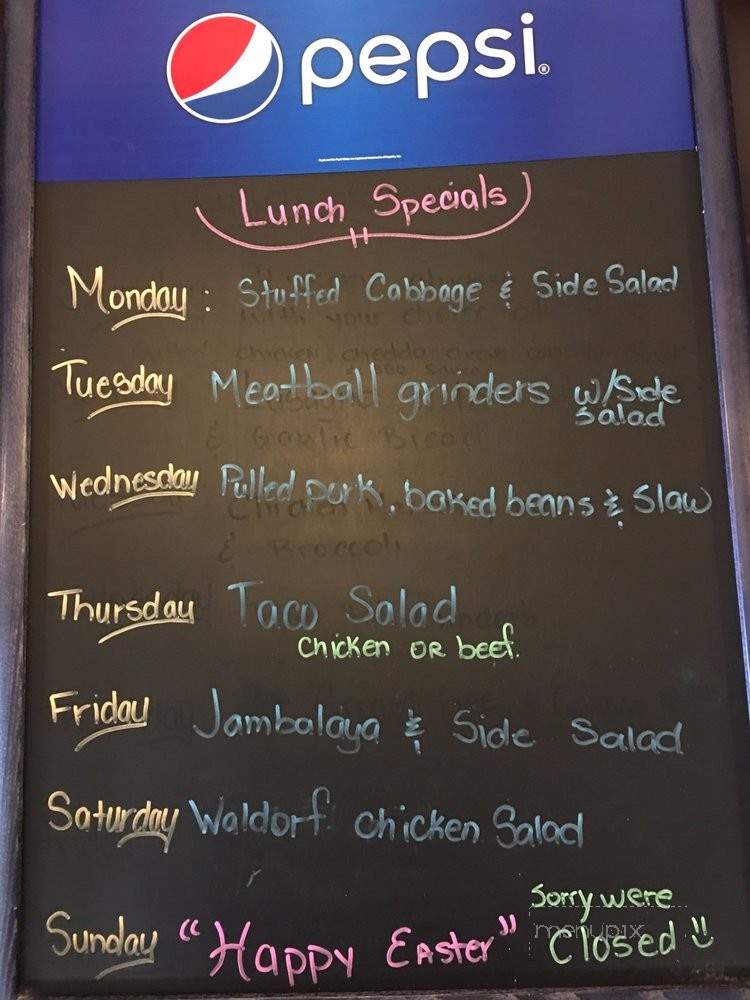 pepsi®
Lunch Specials
Monday: Stuffed Cabbage & Side Salad
Tuesday Meatball grinders w/Side
Salad
Wednesday Pulled pork, baked beans & Slaw
Thursday Taco Salad
Chicken OR beef.
Friday Jambalaya & Side Salad
Saturday Waldorf chicken Salad
Sunday "Happy Easter" Sorry were
Closed
menupix